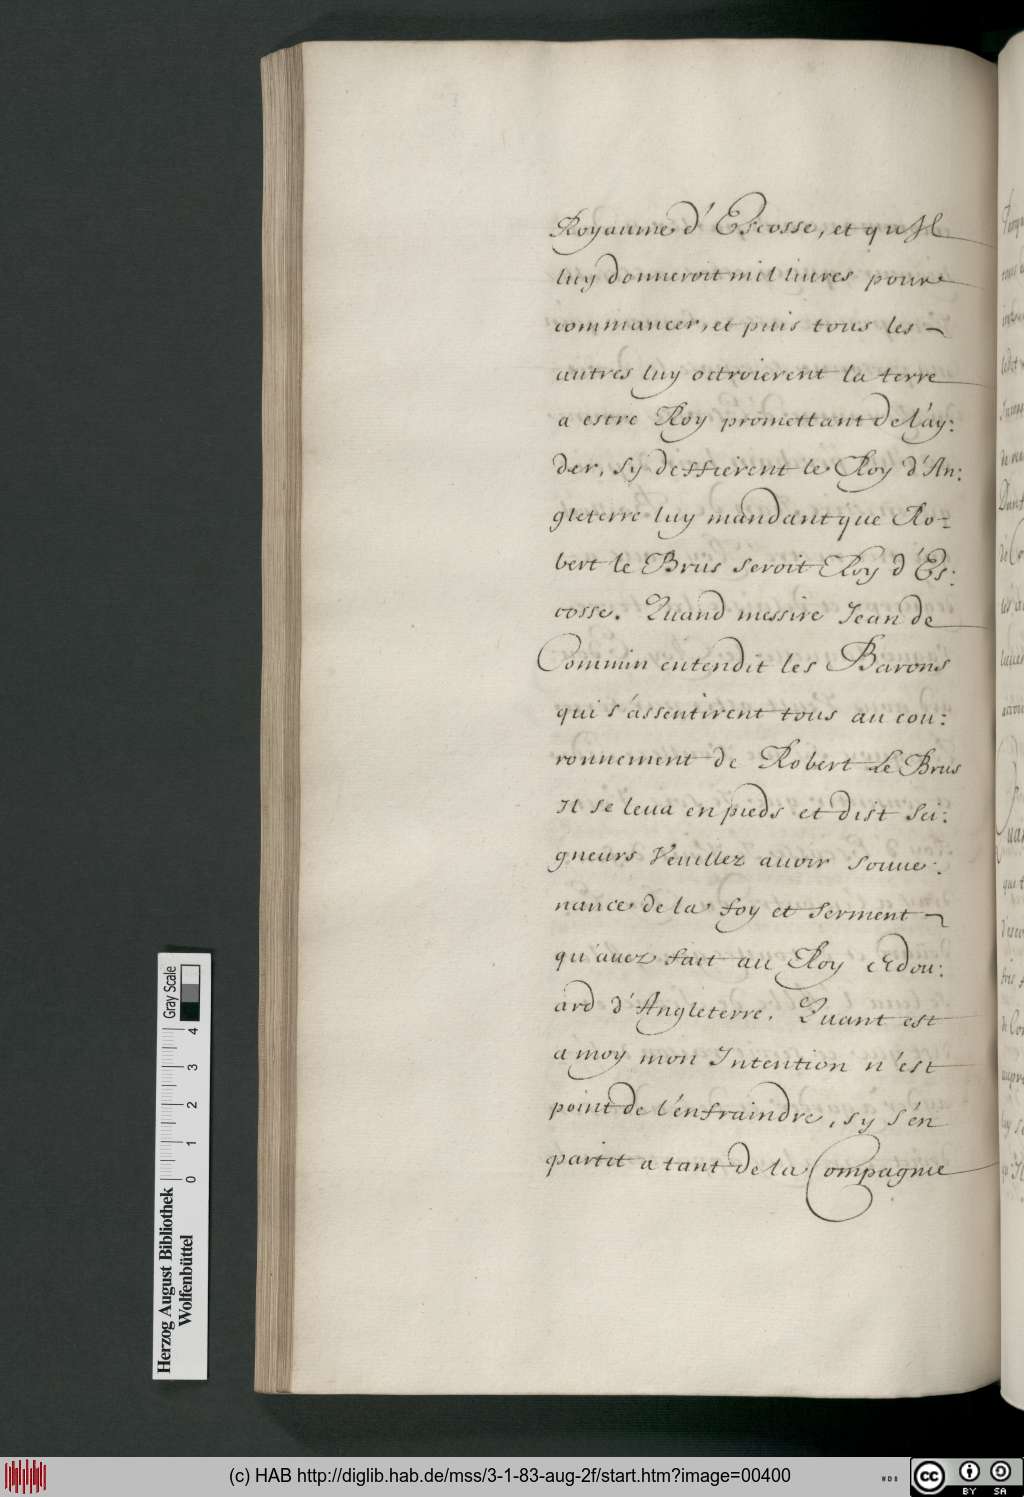 Royaume d'Escosse, et qu Il
luy donneroit mil liures pour
commancer, et puis tous les
autres luy octroierent la terre
a estre Roy promettant de l'ay:
der, sy deffierent le Roy d'An:
gleterre luy mandant que Ro-
bert le Brus seroit Roy d'Es:
cosse. Quand messire Jean de
Commin entendit les Barons
qui s'assentirent tous au cou:
ronnement de Robert Le Brus
Il se leua en pieds et dist sei:
gneurs Veuillez auoir souue:
nance de la foy et serment
qu'auez fait au Roy Edou:
ard d'Angleterre. Quant est
a moy mon Intention n'est
point de l'enfraindre, sy s'en
partit a tant de la Compagnie
Gray Scale
0 1 2 3 4
Herzog August Bibliothek
Wolfenbüttel
(c) HAB http://diglib.hab.de/mss/3-1-83-aug-2f/start.htm?image=00400
cc BY SA